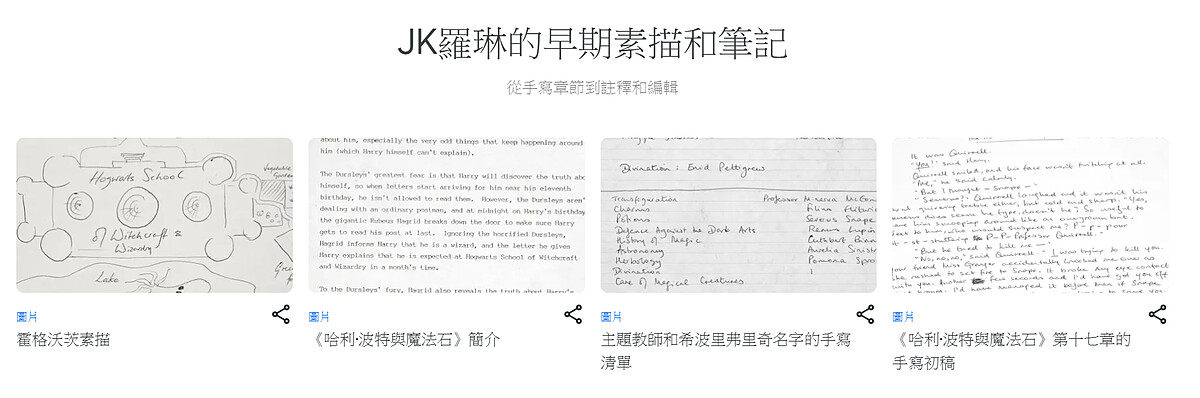 JK羅琳的早期素描和筆記
從手寫章節到註釋和編輯
Hogwarts School
of Witchcraft &
Wizardry
Lake
Vegetable
Garden
about him, especially the very odd things that keep happening around
him (which Harry himself can't explain).
The Dursleys' greatest fear is that Harry will discover the truth abo
himself, so when letters start arriving for him near his eleventh
birthday, he isn't allowed to read them. However, the Dursleys aren'
dealing with an ordinary postman, and at midnight on Harry's birthday
the gigantic Rubeus Hagrid breaks down the door to make sure Harry
gets to read his post at last. Ignoring the horrified Dursleys,
Hagrid informs Harry that he is a wizard, and the letter he gives
Harry explains that he is expected at Hogwarts School of Witchcraft
and Wizardry in a month's time.
To the Dursleys' fury, Hagrid also reveals the truth about Harry's
Divination : Enid Pettigrew
Transfiguration Professor Minerva McGon
Charms Filius Flitwi
Potions Severus Snape
Defence Against the Dark Arts Remus Lupin
History of Magic Cuthbert Binn
Astronomy Aurelia Sinist
Herbology Pomona Spro
Divination
Care of Magical Creatures
It was Quirrell.
"You!" said Harry.
Quirrell smiled, and his face wasn't twitching at all.
"Me," he said calmly.
"But I thought - Snape -"
"Severus?" Quirrell laughed and it wasn't his
usual quivering treble either, but cold and sharp. "Yes,
next to him, who would suspect me? P-p-poor
st-stuttering P-P-Professor Quirrell."
"But he tried to kill me -"
"No, no, no," said Quirrell. "I was trying to kill you.
Your friend Miss Granger accidentally knocked me over as
she rushed to set fire to Snape. It broke my eye contact
with you. Another few seconds and I'd have got you off
圖片
霍格沃茨素描
圖片
《哈利·波特與魔法石》簡介
圖片
主題教師和希波里弗里奇名字的手寫
清單
圖片
《哈利·波特與魔法石》第十七章的
手寫初稿